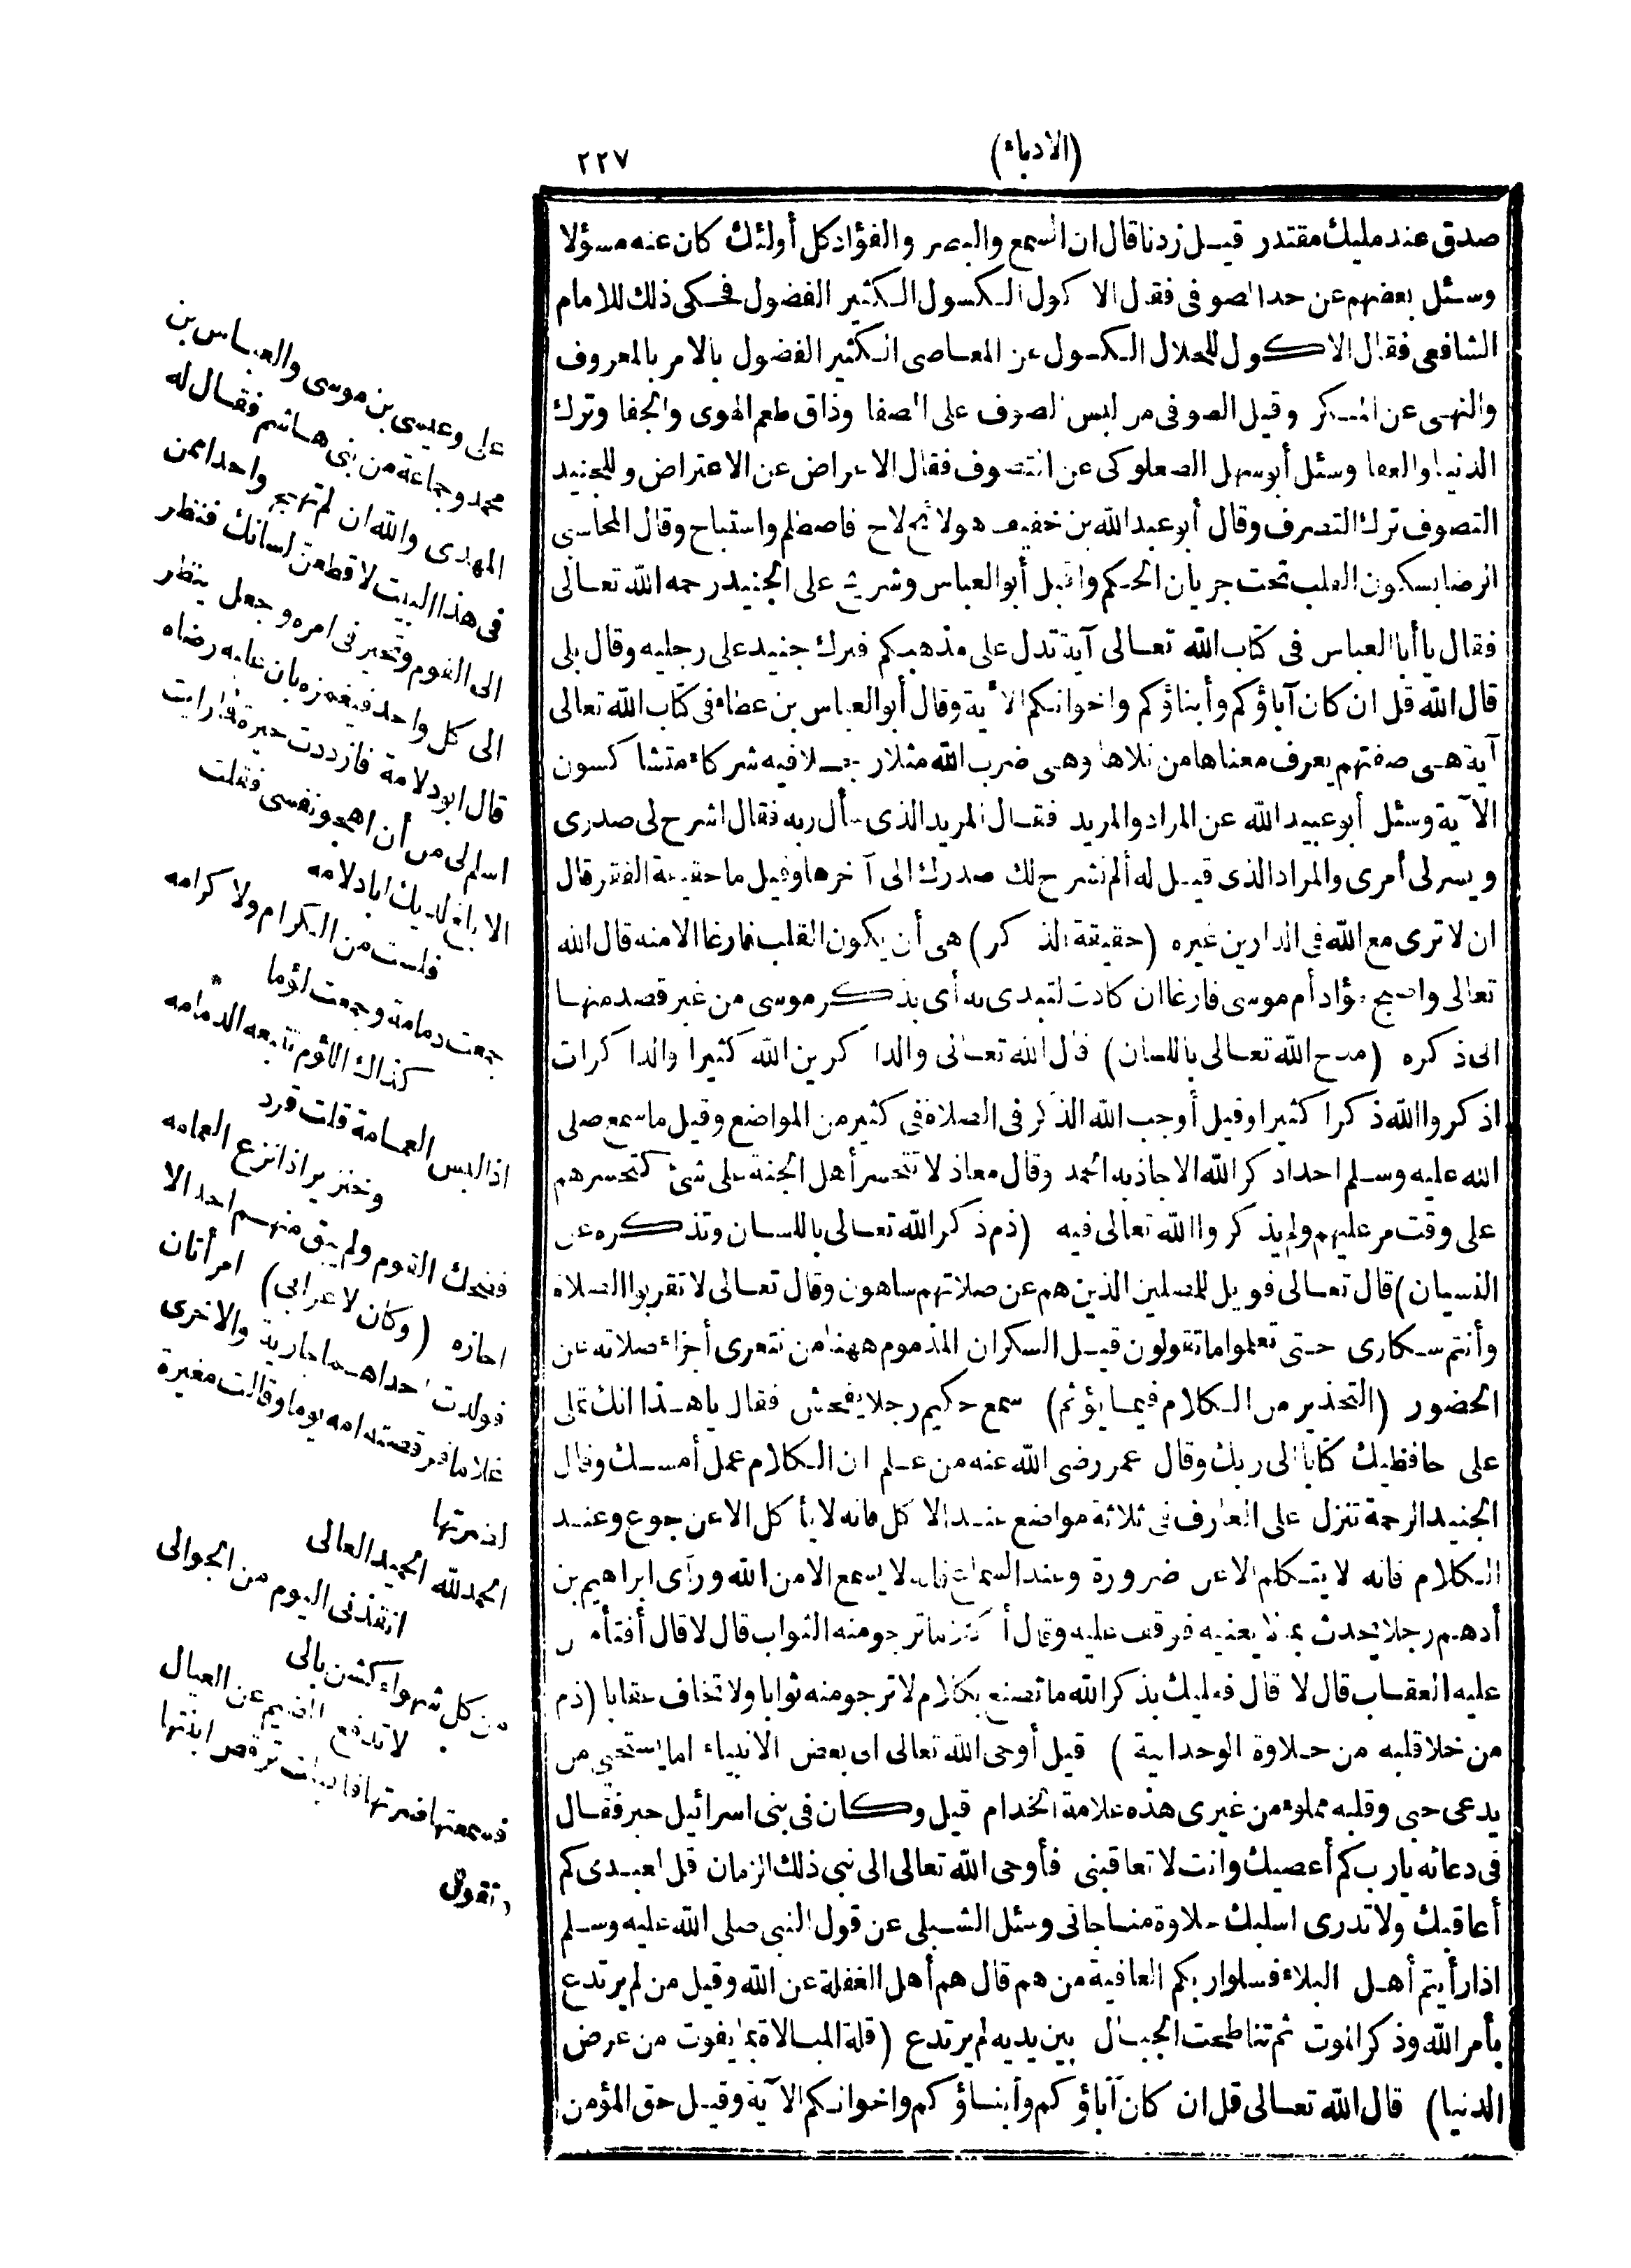 (الادباء)
٢٢٧
صدق عند مليك مقتدر قيل زدنا قال ان السمع والبصر والفؤاد كل أولئك كان عنه مسؤلا
وسئل بعضهم عن حد الصوفى فقال الاكول الكسول الكثير الفضول فحكى ذلك للامام
الشافعى فقال الاكول للحلال الكسول عن المعاصى الكثير الفضول بالامر بالمعروف
والنهى عن المنكر وقيل الصوفى من لبس الصوف على الصفا وذاق طعم الهوى والجفا وترك
الدنيا والعفا وسئل أبو سهل الصعلوكى عن التصوف فقال الاعراض عن الاعتراض وللجنيد
التصوف ترك التصرف وقال أبو عبد الله بن خفيف هو لائح لاح فاصطلم واستباح وقال المحاسبى
الرضا سكون القلب تحت جريان الحكم وأقبل أبو العباس وشريح على الجنيد رحمه الله تعالى
فقال يا أبا العباس فى كتاب الله تعالى آية تدل على مذهبكم فبرك جنيد على رجليه وقال بلى
قال الله قل ان كان آباؤكم وأبناؤكم واخوانكم الآية وقال أبو العباس بن عطاء فى كتاب الله تعالى
آية هى صفتهم يعرف معناها من تلاها وهى ضرب الله مثلا رجلا فيه شركاء متشاكسون
الآية وسئل أبو عبيد الله عن المراد والمريد فقال المريد الذى سأل ربه فقال اشرح لى صدرى
ويسر لى أمرى والمراد الذى قيل له ألم نشرح لك صدرك الى آخرها وقيل ما حقيقة الفقر قال
ان لا ترى مع الله فى الدارين غيره (حقيقة الذكر) هى أن يكون القلب فارغا الا منه قال الله
تعالى واصبح فؤاد أم موسى فارغا ان كادت لتبدى به أى بذكر موسى من غير قصد منها
الى ذكره (مدح الله تعالى باللسان) قال الله تعالى والذاكرين الله كثيرا والذاكرات
اذكروا الله ذكرا كثيرا وقيل أوجب الله الذكر فى الصلاة فى كثير من المواضع وقيل ما سمع صلى
الله عليه وسلم احدا ذكر الله الا جاذبه الحمد وقال معاذ لا تتحسر أهل الجنة على شئ كتحسرهم
على وقت مر عليهم ولم يذكروا الله تعالى فيه (ذم ذكر الله تعالى باللسان وتذكره عن
النسيان) قال تعالى فويل للمصلين الذين هم عن صلاتهم ساهون وقال تعالى لا تقربوا الصلاة
وأنتم سكارى حتى تعلموا ما تقولون قيل السكران المذموم ههنا من تتعرى أجزاء صلاته عن
الحضور (التحذير من الكلام فيما يؤثم) سمع حكيم رجلا يفحش فقال يا هذا انك تملى
على حافظيك كتابا الى ربك وقال عمر رضى الله عنه من علم ان الكلام عمل أمسك وقال
الجنيد الرحمة تنزل على العارف فى ثلاثة مواضع عند الاكل فانه لا يأكل الا عن جوع وعند
الكلام فانه لا يتكلم الا عن ضرورة وعند السماع فانه لا يسمع الا من الله ورأى ابراهيم بن
أدهم رجلا يحدث بما لا يعنيه فوقف عليه وقال أ ترجو منه الثواب قال لا قال أفتأمن
عليه العقاب قال لا قال فعليك بذكر الله ما تصنع بكلام لا ترجو منه ثوابا ولا تخاف عقابا (ذم
من خلا قلبه من حلاوة الوحدانية) قيل أوحى الله تعالى الى بعض الانبياء اما يستحي من
يدعى حبى وقلبه مملوء من غيرى هذه علامة الخدام قيل وكان فى بنى اسرائيل حبر فقال
فى دعائه يا رب كم أعصيك وانت لا تعاقبنى فأوحى الله تعالى الى نبى ذلك الزمان قل لعبدى كم
أعاقبك ولا تدرى اسلبك حلاوة مناجاتى وسئل الشبلى عن قول النبى صلى الله عليه وسلم
اذا رأيتم أهل البلاء فسلوا ربكم العافية من هم قال هم أهل الغفلة عن الله وقيل من لم يرتدع
بأمر الله وذكر الموت ثم تناطحت الجبال بين يديه لم يرتدع (قلة المبالاة بما يفوت من عرض
الدنيا) قال الله تعالى قل ان كان آباؤكم وأبناؤكم واخوانكم الآية وقيل حق المؤمن
على وعيسى بن موسى والعباس بن
محمد وجماعة من بنى هاشم فقال له
المهدى والله ان لم تهج واحدا ممن
فى هذا البيت لاقطعن لسانك فنظر
الى القوم وتحير فى امره وجعل ينظر
الى كل واحد فيغمزه بان عليه رضاه
قال ابو دلامة فازددت حيرة فما رايت
اسلم لى من أن اهجو نفسى فقلت
الا ابلغ لديك ابا دلامه
فلست من الكرام ولا كرامه
جمعت دمامة وجمعت لؤما *
كذاك اللؤم تتبعه الدمامه
اذا لبس العمامة قلت قرد
وخنزير اذا نزع العمامه
فضحك القوم ولم يبق منهم احد الا
اجازه (وكان لاعرابى) امرأتان
فولدت احداهما جارية والاخرى
غلاما فرقصته امه يوما وقالت مغيرة
لضرتها
الحمد لله الحميد العالى
انقذنى اليوم من الجوالى
من كل شوهاء كشن بالى
لا تدفع الضيم عن العيال
فسمعتها ضرتها فاقبلت ترقص ابنتها
وتقول